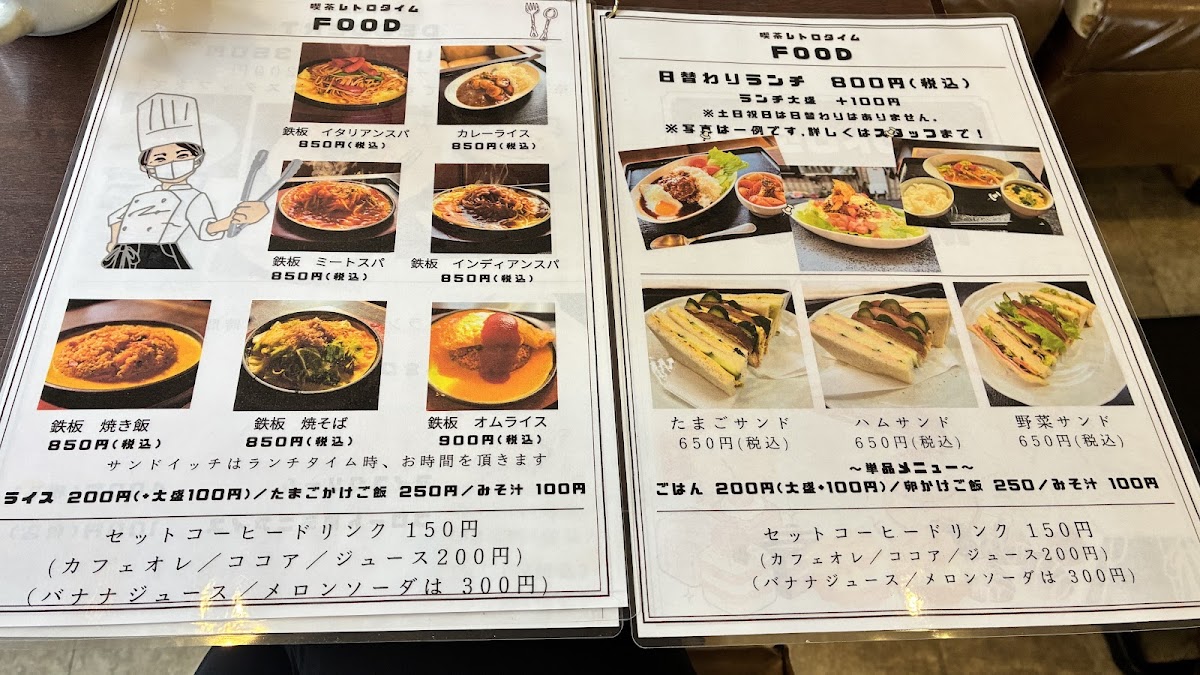 喫茶レトロタイム
FOOD
鉄板 イタリアンスパ
850円(税込)
カレーライス
850円(税込)
鉄板 ミートスパ
850円(税込)
鉄板 インディアンスパ
850円(税込)
鉄板 焼き飯
850円(税込)
鉄板 焼そば
850円(税込)
鉄板 オムライス
900円(税込)
サンドイッチはランチタイム時、お時間を頂きます
ライス 200円(+大盛100円)/たまごかけご飯 250円/みそ汁 100円
セットコーヒードリンク 150円
(カフェオレ/ココア/ジュース200円)
(バナナジュース/メロンソーダは 300円)
喫茶レトロタイム
FOOD
日替わりランチ 800円(税込)
ランチ大盛 +100円
※土日祝日は日替わりはありません.
※写真は一例です.詳しくはスタッフまで!
たまごサンド
650円(税込)
ハムサンド
650円(税込)
野菜サンド
650円(税込)
~単品メニュー~
ごはん 200円(大盛+100円)/卵かけご飯 250/みそ汁 100円
セットコーヒードリンク 150円
(カフェオレ/ココア/ジュース200円)
(バナナジュース/メロンソーダは 300円)